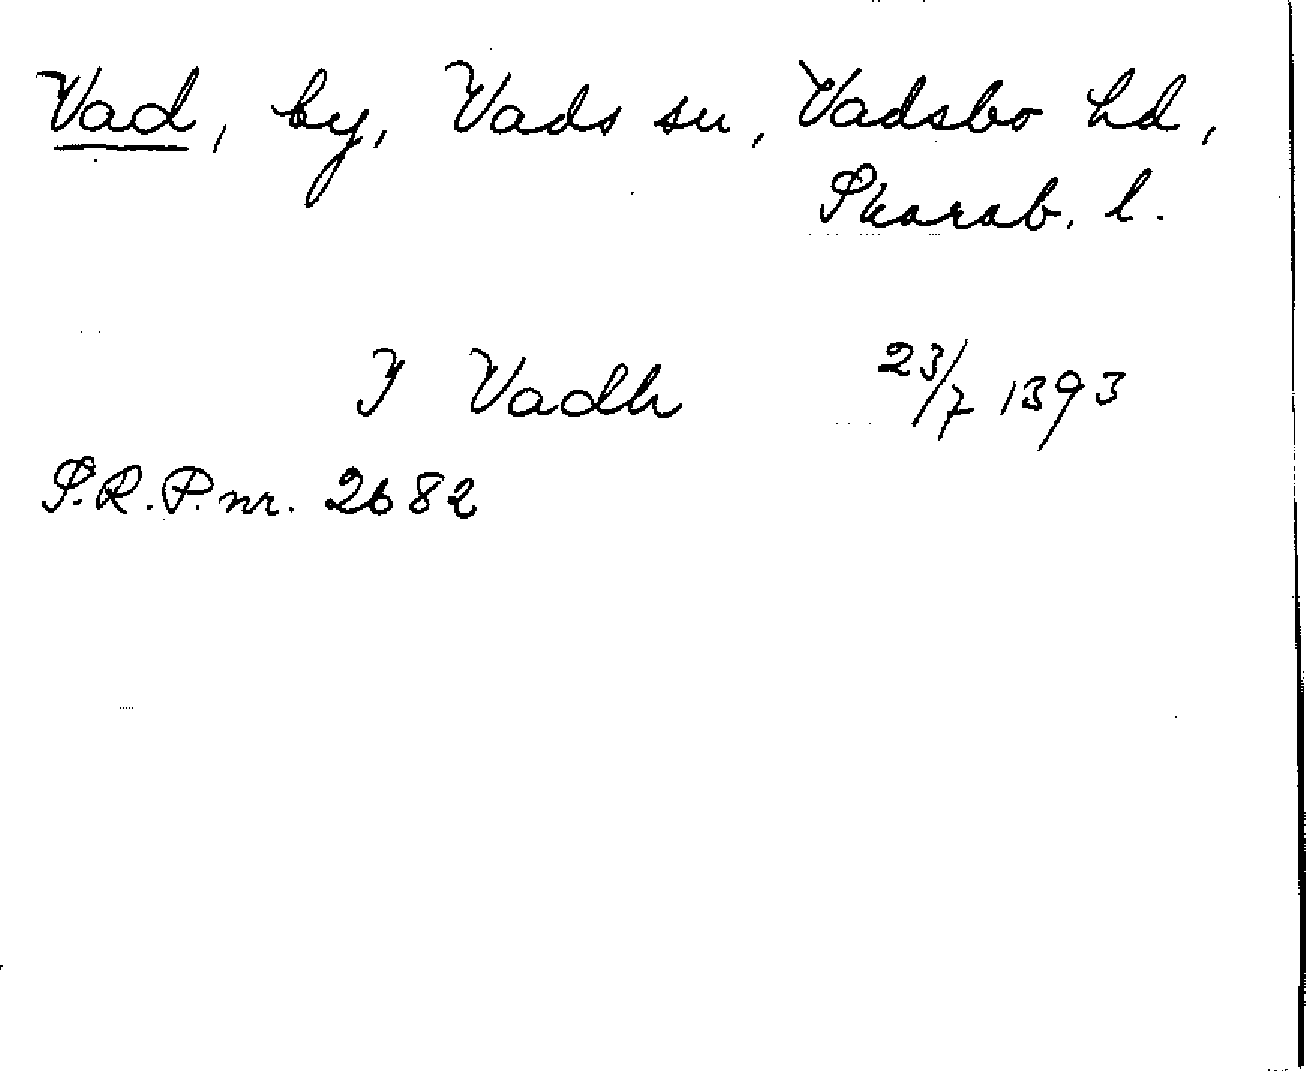 Vad, by, Vads sn, Vadsbo hd,
Skarab. l.
I Vadh 23/7 1393
S.R.P. nr. 2682